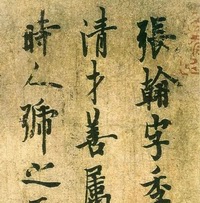 張翰字季
清才善屬
時人號之